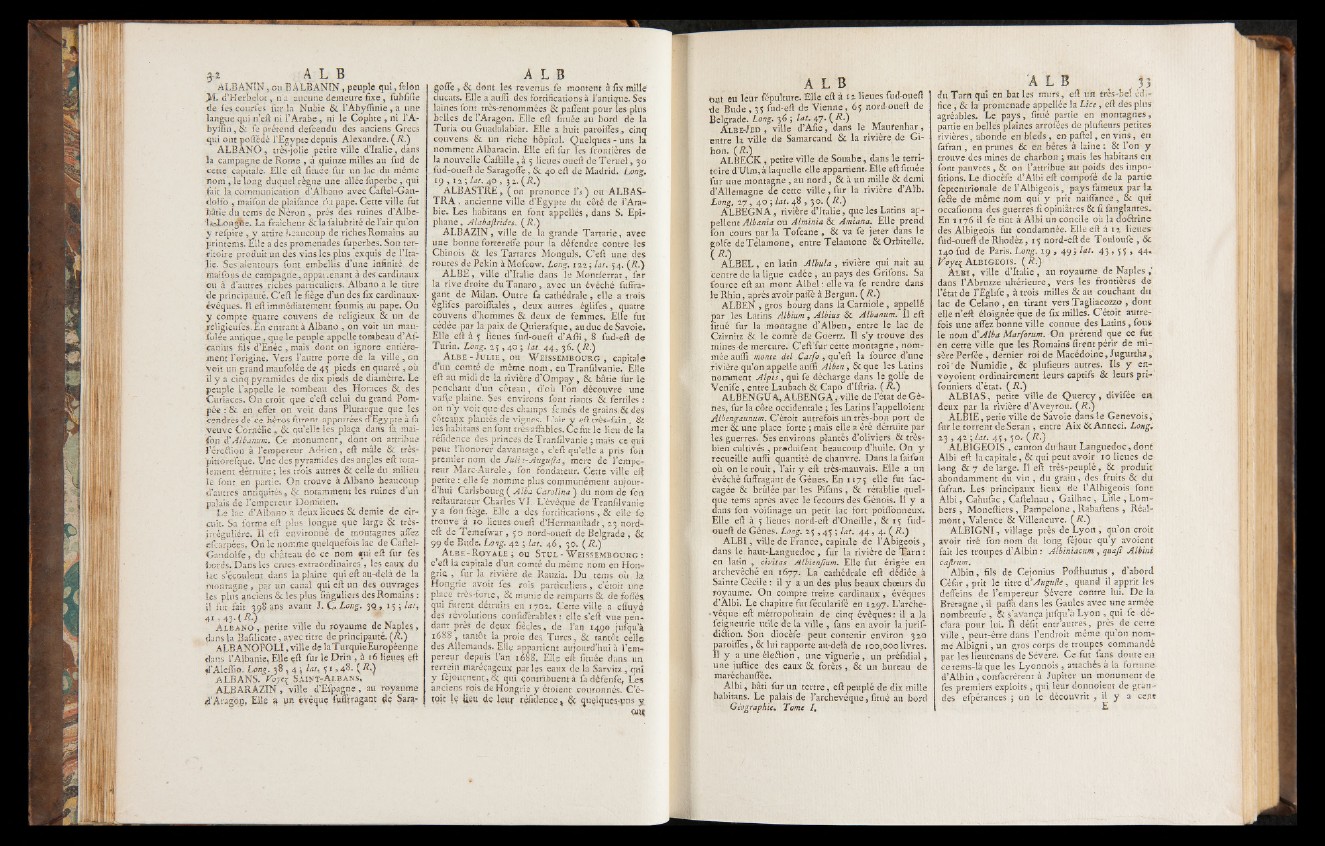 32 A L B
ALBANIN, ou BALBANIN, peuple qui, ſelon
M. d'Herbelot, n'a aucune demeure fixe, ſubſiſte
de ſes courſes ſur la Nubie & l'Abyſſinie, a une
langue qui n'eſt ni l'Arabe, ni le Cophte, ni l'A-
byſſin, & ſe prétend deſcendu des anciens Grecs
qui ont poſſédé l'Egypte depuis Alexandre. (R.)
ALBANO, très-jolie petite ville d'Italie, dans
la campagne de Rome, à quinze milles au ſud de
cette capitale. Elle eſt ſituée ſur un lac du même
nom, le long duquel règne une allée ſuperbe, qui
fait la communication d'Albano avec Caſtel-Gan-
dolfo, maiſon de plaiſance du pape. Cette ville fut
bâtie du tems de Néron, près des ruines d'Albe-
la-Longue. La fraîcheur & la ſalubrité de l'air qu'on
y reſpire, y attire beaucoup de riches Romains au
printems. Elle a des promenades ſuperbes. Son ter-
ritoire produit un des vins les plus exquis de l'Ita-
lie. Ses alentours ſont embellis d'une infinité de
maiſons de campagne, appartenant à des cardinaux
ou à d'autres riches particuliers. Albano a le titre
de principauté. C'eſt le ſiège d'un des ſix cardinaux-
évêques. Il eſt immédiatement ſoumis au pape. On
y compte quatre couvens de religieux & un de
religieuſes. En entrant à Albano, on voit un mau-
ſolée antique, que le peuple appelle tombeau d'Aſ-
canius fils d'Enée, mais dont on ignore entière-
ment l'origine. Vers l'autre porte de la ville, on
voit un grand mauſolée de 45 pieds en quarré, où
il y a cinq pyramides de dix pieds de diamètre. Le
peuple l'appelle le tombeau des Horaces & des
Curiaces. On croit que c'eſt celui du grand Pom-
pée: & en effet on voit dans Plutarque que les
cendres de ce héros furent apportées d'Egypte à ſa
veuve Cornélie, & qu'elle les plaça dans ſa mai-
ſon d'Albanum. Ce monument, dont on attribue
l'érection à l'empereur Adrien, eſt mâle & très-
pittoreſque. Une des pyramides des angles eſt tota-
lement détruite; les trois autres & celle du milieu
le ſont en partie. On trouve à Albano beaucoup
d'autres antiquités, & notamment les ruines d'un
palais de l'empereur Domitien.
Le lac d'Albano a deux lieues & demie de cir-
cuit. Sa forme eſt plus longue que large & très-
irrégulière. Il eſt environné de montagnes aſſez
eſcarpées. On le nomme quelquefois lac de Caſtel-
Gandolfe, du château de ce nom qui eſt ſur ſes
bords. Dans les crues extraordinaires, les eaux du
lac s'écoulent dans la plaine qui eſt au-delà de la
montagne, par un canal qui eſt un des ouvrages
les plus anciens & les plus ſinguliers des Romains:
il fut fait 398 ans avant J. C. Long. 30, 15; lat.
41, 43. (R.)
ALBANO, petite ville du royaume de Naples,
dans la Baſilicate, avec titre de principauté. (R.)
ALBANOPOLI, ville de la Turquie Européenne
dans l'Albanie. Elle eſt ſur le Drin, à 16 lieues eſt
d'Aleſſio. Long. 38, 4; lat. 51, 48. (R.)
ALBANS. Voyez SAINT-ALBANS.
ALBARAZIN, ville d'Eſpagne, au royaume
d'Aragon. Elle a un évêque ſuffragant de Sara-
A L B
goſſe, & dont les revenus ſe montent à ſix mille
ducats. Elle a auſſi des fortifications à l'antique. Ses
laines ſont très-renommées & paſſent pour les plus
belles de l'Aragon. Elle eſt ſituée au bord de la
Turia ou Guadalabiar. Elle a huit paroiſſes, cinq
couvens & un riche hôpital. Quelques-uns la
nomment Albaracin. Elle eſt ſur les frontières de
la nouvelle Caſtille, à 5 lieues oueſt de Teruel, 30
ſud-oueſt de Saragoſſe, & 40 eſt de Madrid. Long.
19, 12; lat. 40, 32. (R.)
ALBASTRE, (on prononce l's) ou ALBAS-
TRA, ancienne ville d'Egypte du côté de l'Ara-
bie. Les habitans en ſont appellés, dans S. Epi-
phane, Alabaſtrides. (R.)
ALBAZIN, ville de la grande Tartarie, avec
une bonne fortereſſe pour la défendre contre les
Chinois & les Tartares Monguls. C'eſt une des
routes de Pekin à Moſcow. Long. 122; lat. 54. (R.)
ALBE, ville d'Italie dans le Montferrat, ſur
la rive droite du Tanaro, avec un évêché ſuffra-
gant de Milan. Outre ſa cathédrale, elle a trois
égliſes paroiſſiales, deux autres égliſes, quatre
couvens d'hommes & deux de femmes. Elle fut
cédée par la paix de Quieraſque, au duc de Savoie.
Elle eſt à 5 lieues ſud-oueſt d'Aſti, 8 ſud-eſt de
Turin. Long. 25, 40; lat. 44, 36. (R.)
ALBE-JULIE, ou WEISSEMBOURG, capitale
d'un comté de même nom, en Tranſilvanie. Elle
eſt au midi de la rivière d'Ompay, & bâtie ſur le
penchant d'un côteau, d'où l'on découvre une
vaſte plaine. Ses environs ſont rians & fertiles:
on n'y voit que des champs ſemés de grains & des
côteaux plantés de vignes. L'air y eſt très-ſain, &
les habitans en ſont très-affables. Ce fut le lieu de la
réſidence des princes de Tranſilvanie; mais ce qui
peut l'honorer davantage, c'eſt qu'elle a pris ſon
premier nom de Julia-Auguſta, mere de l'empe-
reur Marc-Aurele, ſon fondateur. Cette ville eſt
petite: elle ſe nomme plus communément aujour-
d'hui Carlsbourg (Alba Carolina) du nom de ſon
reſtaurateur Charles VI. L'évêque de Tranſilvanie
y a ſon ſiége. Elle a des fortifications, & elle ſe
trouve à 10 lieues oueſt d'Hermanſtadt, 23 nord-
eſt de Temeſwar, 50 nord-oueſt de Belgrade, &
99 de Bude. Long. 42; lat. 46, 30. (R.)
ALBE-ROYALE; ou STUL-WEISSEMBOURG:
c'eſt la capitale d'un comté du même nom en Hon-
grie, ſur la rivière de Rauzia. Du tems où la
Hongrie avoit ſes rois particuliers, c'étoit une
place très-forte, & munie de remparts & de foſſés
qui furent détruits en 1702. Cette ville a eſſuyé
des révolutions conſidérables: elle s'eſt vue pen-
dant près de deux ſiècles, de l'an 1490 juſqu'à
1688, tantôt la proie des Turcs, & tantôt celle
des Allemands. Elle appartient aujourd'hui à l'em-
pereur depuis l'an 1688. Elle eſt ſituée dans un
terrein marécageux par les eaux de la Sarvitz, qui
y ſéjournent, & qui contribuent à ſa défenſe. Les
anciens rois de Hongrie y étoient couronnés. C'é-
toit le lieu de leur réſidence, & quelques-uns y
ont
A L B
ont eu leur ſépulture. Elle eſt à 12 lieues ſud-oueſt
de Bude, 35 ſud-eſt de Vienne, 65 nord-oueſt de
Belgrade. Long. 36; lat. 47. (R.)
ALBE-JED, ville d'Aſie, dans le Maurenhar,
entre la ville de Samarcand & la rivière de Gi-
hon. (R.)
ALBECK, petite ville de Souabe, dans le terri-
toire d'Ulm, à laquelle elle appartient. Elle eſt ſituée
ſur une montagne, au nord, & à un mille & demi
d'Allemagne de cette ville, ſur la rivière d'Alb.
Long. 27, 40; lat. 48, 30. (R.)
ALBEGNA, rivière d'Italie, que les Latins ap-
pellent Albania ou Alminia & Aniana. Elle prend
ſon cours par la Toſcane, & va ſe jeter dans le
golfe de Télamone, entre Telamone & Orbitelle.
(R.)
ALBEL, en latin Albula, rivière qui naît au
centre de la ligue cadée, au pays des Griſons. Sa
ſource eſt au mont Albel: elle va ſe rendre dans
le Rhin, après avoir paſſé à Bergun. (R.)
ALBEN, gros bourg dans la Carniole, appellé
par les Latins Albium, Albius & Albanum. Il eſt
ſitué ſur la montagne d'Alben, entre le lac de
Czirnitz & le comté de Goertz. Il s'y trouve des
mines de mercure. C'eſt ſur cette montagne, nom-
mée auſſi monte del Carſo, qu'eſt la ſource d'une
rivière qu'on appelle auſſi Alben, & que les Latins
nomment Alpis, qui ſe décharge dans le golfe de
Veniſe, entre Laubach & Capo d'Iſtria. (R.)
ALBENGUA, ALBENGA, ville de l'état de Gè-
nes, ſur la côte occidentale; les Latins l'appelloient
Albengaunum. C'étoit autrefois un très-bon port de
mer & une place forte; mais elle a été détruite par
les guerres. Ses environs plantés d'oliviers & très-
bien cultivés, produiſent beaucoup d'huile. On y
recueille auſſi quantité de chanvre. Dans la ſaiſon
où on le rouit, l'air y eſt très-mauvais. Elle a un
évêché ſuffragant de Gènes. En 1175 elle fut ſac-
cagée & brûlée par les Piſans, & rétablie quel-
que tems après avec le ſecours des Génois. Il y a
dans ſon voiſinage un petit lac fort poiſſonneux.
Elle eſt à 5 lieues nord-eſt d'Oneille, & 15 ſud-
oueſt de Gènes. Long. 25, 45; lat. 44, 4. (R.)
ALBI, ville de France, capitale de l'Albigeois,
dans le haut-Languedoc, ſur la rivière de Tarn:
en latin, civitas Albienſium. Elle fut érigée en
archevêché en 1677. La cathédrale eſt dédiée à
Sainte Cécile: il y a un des plus beaux chœurs du
royaume. On compte treize cardinaux, évêques
d'Albi. Le chapitre fut ſéculariſé en 1297. L'arche-
vêque eſt métropolitain de cinq évêques: il a la
ſeigneurie utile de la ville, ſans en avoir la juriſ-
diction. Son diocèſe peut contenir environ 320
paroiſſes, & lui rapporte au-delà de 100,000 livres.
Il y a une élection, une viguerie, un préſidial,
une juſtice des eaux & forêts, & un bureau de
maréchauſſée.
Albi, bâti ſur un tertre, eſt peuplé de dix mille
habitans. Le palais de l'archevêque, ſitué au bord
Géographie. Tome I.
A L B 33
du Tarn qui en bat les murs, eſt un très-bel édi-
fice, & la promenade appellée la Lice, eſt des plus
agréables. Le pays, ſitué partie en montagnes,
partie en belles plaines arroſées de pluſieurs petites
rivières, abonde en bleds, en paſtel, en vins, en
ſafran, en prunes & en bêtes à laine: & l'on y
trouve des mines de charbon; mais les habitans en
ſont pauvres, & on l'attribue au poids des impo-
ſitions. Le diocèſe d'Albi eſt compoſé de la partie
ſeptentrionale de l'Albigeois, pays fameux par la
ſecte de même nom qui y prit naiſſance, & qui
occaſionna des guerres ſi opiniâtres & ſi ſanglantes.
En 1176 il ſe tint à Albi un concile où la doctrine
des Albigeois fut condamnée. Elle eſt à 12 lieues
ſud-oueſt de Rhodèz, 15 nord-eſt de Toulouſe, &
140 ſud de Paris. Long. 19, 49; lat. 43, 55, 44.
Voyez ALBIGEOIS. (R.)
ALBI, ville d'Italie, au royaume de Naples,
dans l'Abruzze ultérieure, vers les frontières de
l'état de l'Egliſe, à trois milles & au couchant du
lac de Celano, en tirant vers Tagliacozzo, dont
elle n'eſt éloignée que de ſix milles. C'étoit autre-
fois une aſſez bonne ville connue des Latins, ſous
le nom d'Alba Marſorum. On prétend que ce fut
en cette ville que les Romains firent périr de mi-
ſère Perſée, dernier roi de Macédoine, Jugurtha,
roi de Numidie, & pluſieurs autres. Ils y en-
voyoient ordinairement leurs captifs & leurs pri-
ſonniers d'état. (R.)
ALBIAS, petite ville de Quercy, diviſée en
deux par la rivière d'Aveyrou. (R.)
ALBIE, petite ville de Savoie dans le Genevois,
ſur le torrent de Seran, entre Aix & Anneci. Long.
23, 42; lat. 45, 50. (R.)
ALBIGEOIS, canton du haut Languedoc, dont
Albi eſt la capitale, & qui peut avoir 10 lieues de
long & 7 de large. Il eſt très-peuplé, & produit
abondamment du vin, du grain, des fruits & du
ſafran. Les principaux lieux de l'Albigeois ſont
Albi, Cahuſac, Caſtelnau, Gailhac, Liſle, Lom-
bers, Moneſtiers, Pampelone, Rabaſtens, Réal-
mont, Valence & Villeneuve. (R.)
ALBIGNI, village près de Lyon, qu'on croit
avoir tiré ſon nom du long ſéjour qu'y avoient
fait les troupes d'Albin: Albiniacum, quaſi Albini
caſtrum.
Albin, fils de Cejonius Poſthumus, d'abord
Céſar, prit le titre d'Auguſte, quand il apprit les
deſſeins de l'empereur Sévere contre lui. De la
Bretagne, il paſſa dans les Gaules avec une armée
nombreuſe, & s'avança juſqu'à Lyon, qui ſe dé-
clara pour lui. Il défit entr'autres, près de cette
ville, peut-être dans l'endroit même qu'on nom-
me Albigni, un gros corps de troupes commandé
par les lieutenans de Sévere. Ce fut ſans doute en
ce tems-là que les Lyonnois, attachés à la fortune
d'Albin, conſacrèrent à Jupiter un monument de
ſes premiers exploits, qui leur donnoient de gran-
des eſpérances; on le découvrit, il y a cent
E